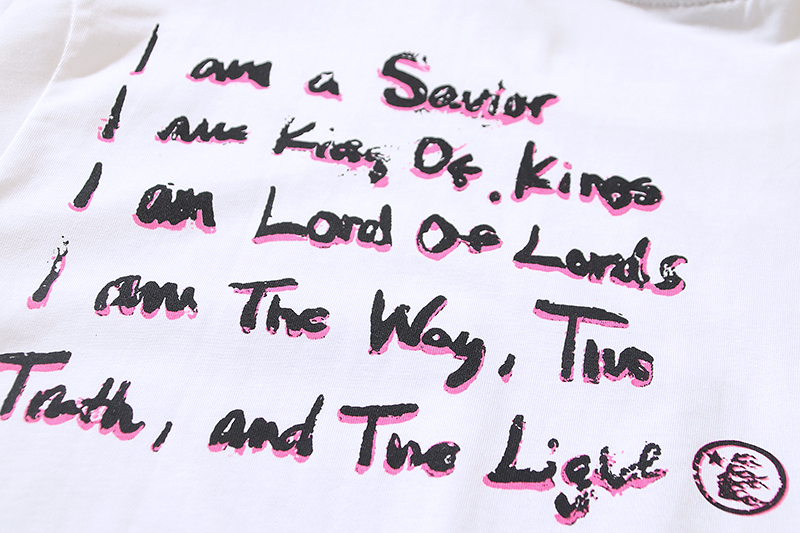 I am a Savior
I am King Of Kings
I am Lord Of Lords
I am The Way, The
Truth, and The Light